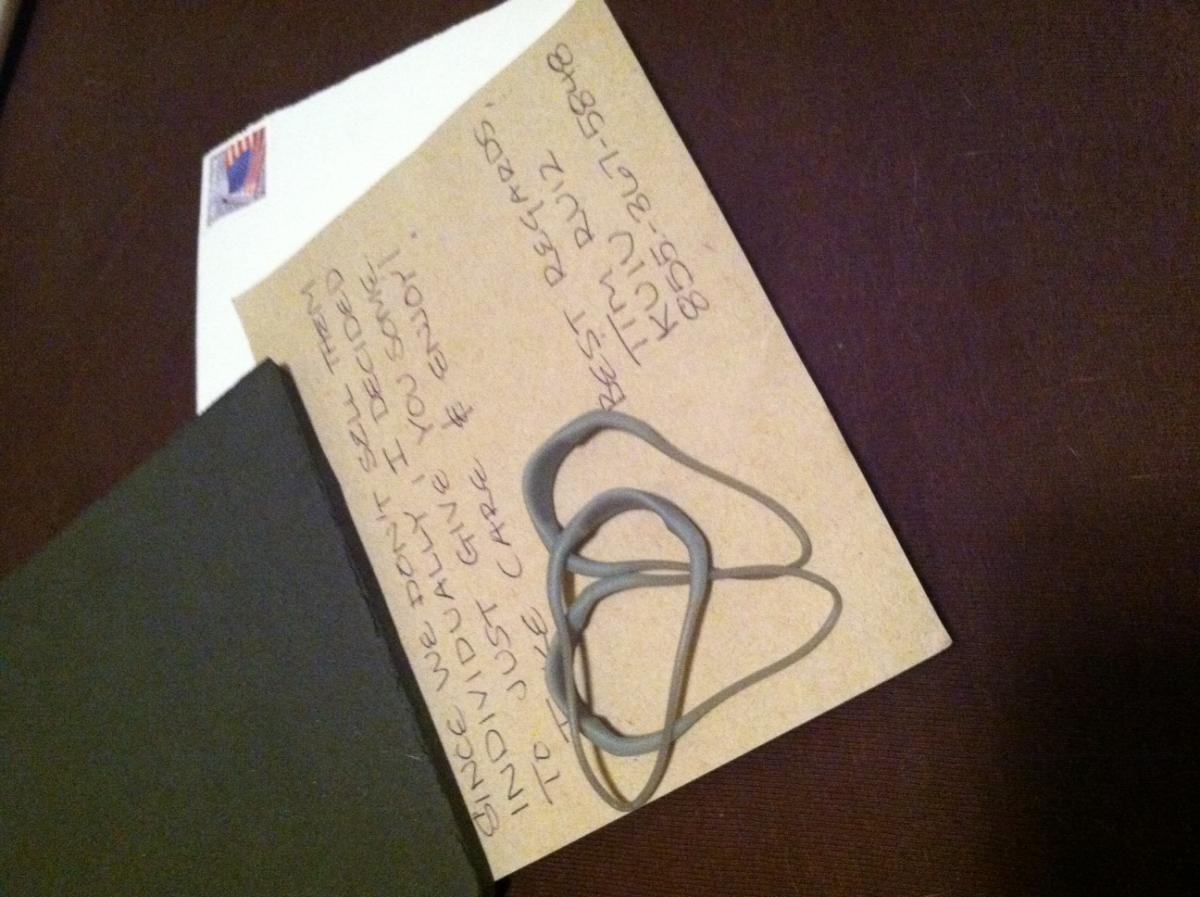 SINCE WE DON'T SELL THEM
INDIVIDUALLY, I DECIDED
TO JUST GIVE YOU SOME.
CARE & ENJOY!
BEST REGARDS,
TIM RUIZ
KUIU
855-367-5848